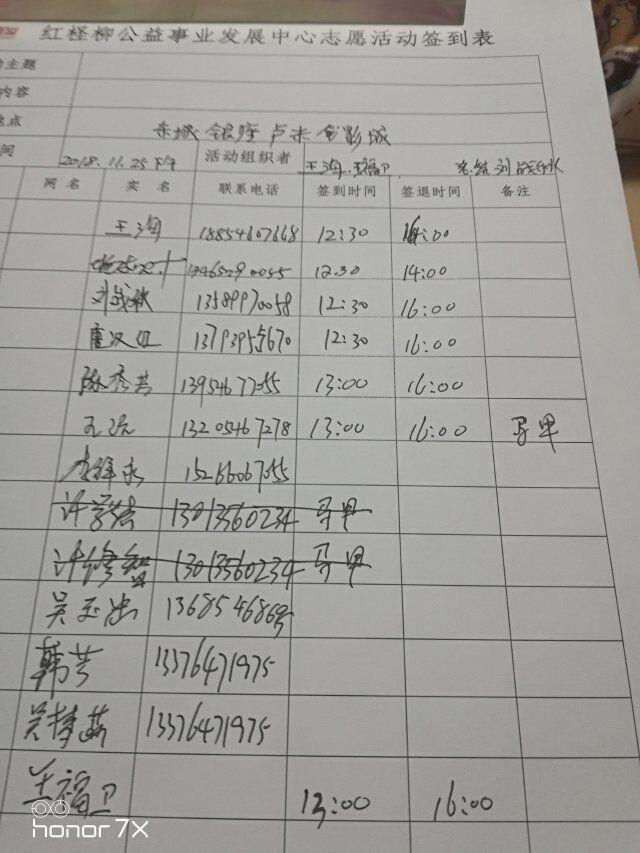 红柽柳公益事业发展中心志愿活动签到表
主题
内容
地点
东城 银座 卢米 电影城
间 2018.11.25下午 活动组织者 王海 王福卫 总结 刘
网名 实名 联系电话 签到时间 签退时间 备注
王海 18854607668 12:30 16:00
12:30 14:00
刘战 13589970058 12:30 16:00
唐汉 13793955670 12:30 16:00
陈秀芸 13954677055 13:00 16:00
13205467278 13:00 16:00 马甲
15266067055
许 13013560234 马甲
许修 13013560234 马甲
吴玉 136854686
韩芳 13376471975
吴梦茹 13376471975
王福卫 13:00 16:00
honor 7X